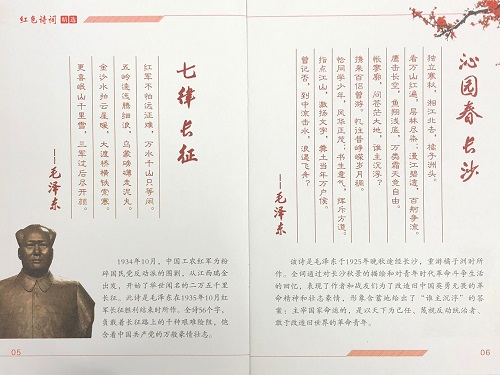 红色诗词 精选
七律 长征
红军不怕远征难，万水千山只等闲。
五岭逶迤腾细浪，乌蒙磅礴走泥丸。
金沙水拍云崖暖，大渡桥横铁索寒。
更喜岷山千里雪，三军过后尽开颜。
——毛泽东
1934年10月，中国工农红军为粉
碎国民党反动派的围剿，从江西瑞金
出发，开始了举世闻名的二万五千里
长征。此诗是毛泽东在1935年10月红
军长征胜利结束时所作。全诗56个字，
负载着长征路上的千种艰难险阻，饱
含着中国共产党的万般豪情壮志。
05
沁园春 长沙
独立寒秋，湘江北去，橘子洲头。
看万山红遍，层林尽染；漫江碧透，百舸争流。
鹰击长空，鱼翔浅底，万类霜天竞自由。
怅寥廓，问苍茫大地，谁主沉浮？
携来百侣曾游，忆往昔峥嵘岁月稠。
恰同学少年，风华正茂；书生意气，挥斥方遒。
指点江山，激扬文字，粪土当年万户侯。
曾记否，到中流击水，浪遏飞舟？
——毛泽东
该诗是毛泽东于1925年晚秋途经长沙，重游橘子洲时所
作。全词通过对长沙秋景的描绘和对青年时代革命斗争生活
的回忆，表现了作者和战友们为了改造旧中国英勇无畏的革
命精神和壮志豪情，形象含蓄地给出了“谁主沉浮”的答
案：主宰国家命运的，是以天下为己任、蔑视反动统治者、
敢于改造旧世界的革命青年。
06